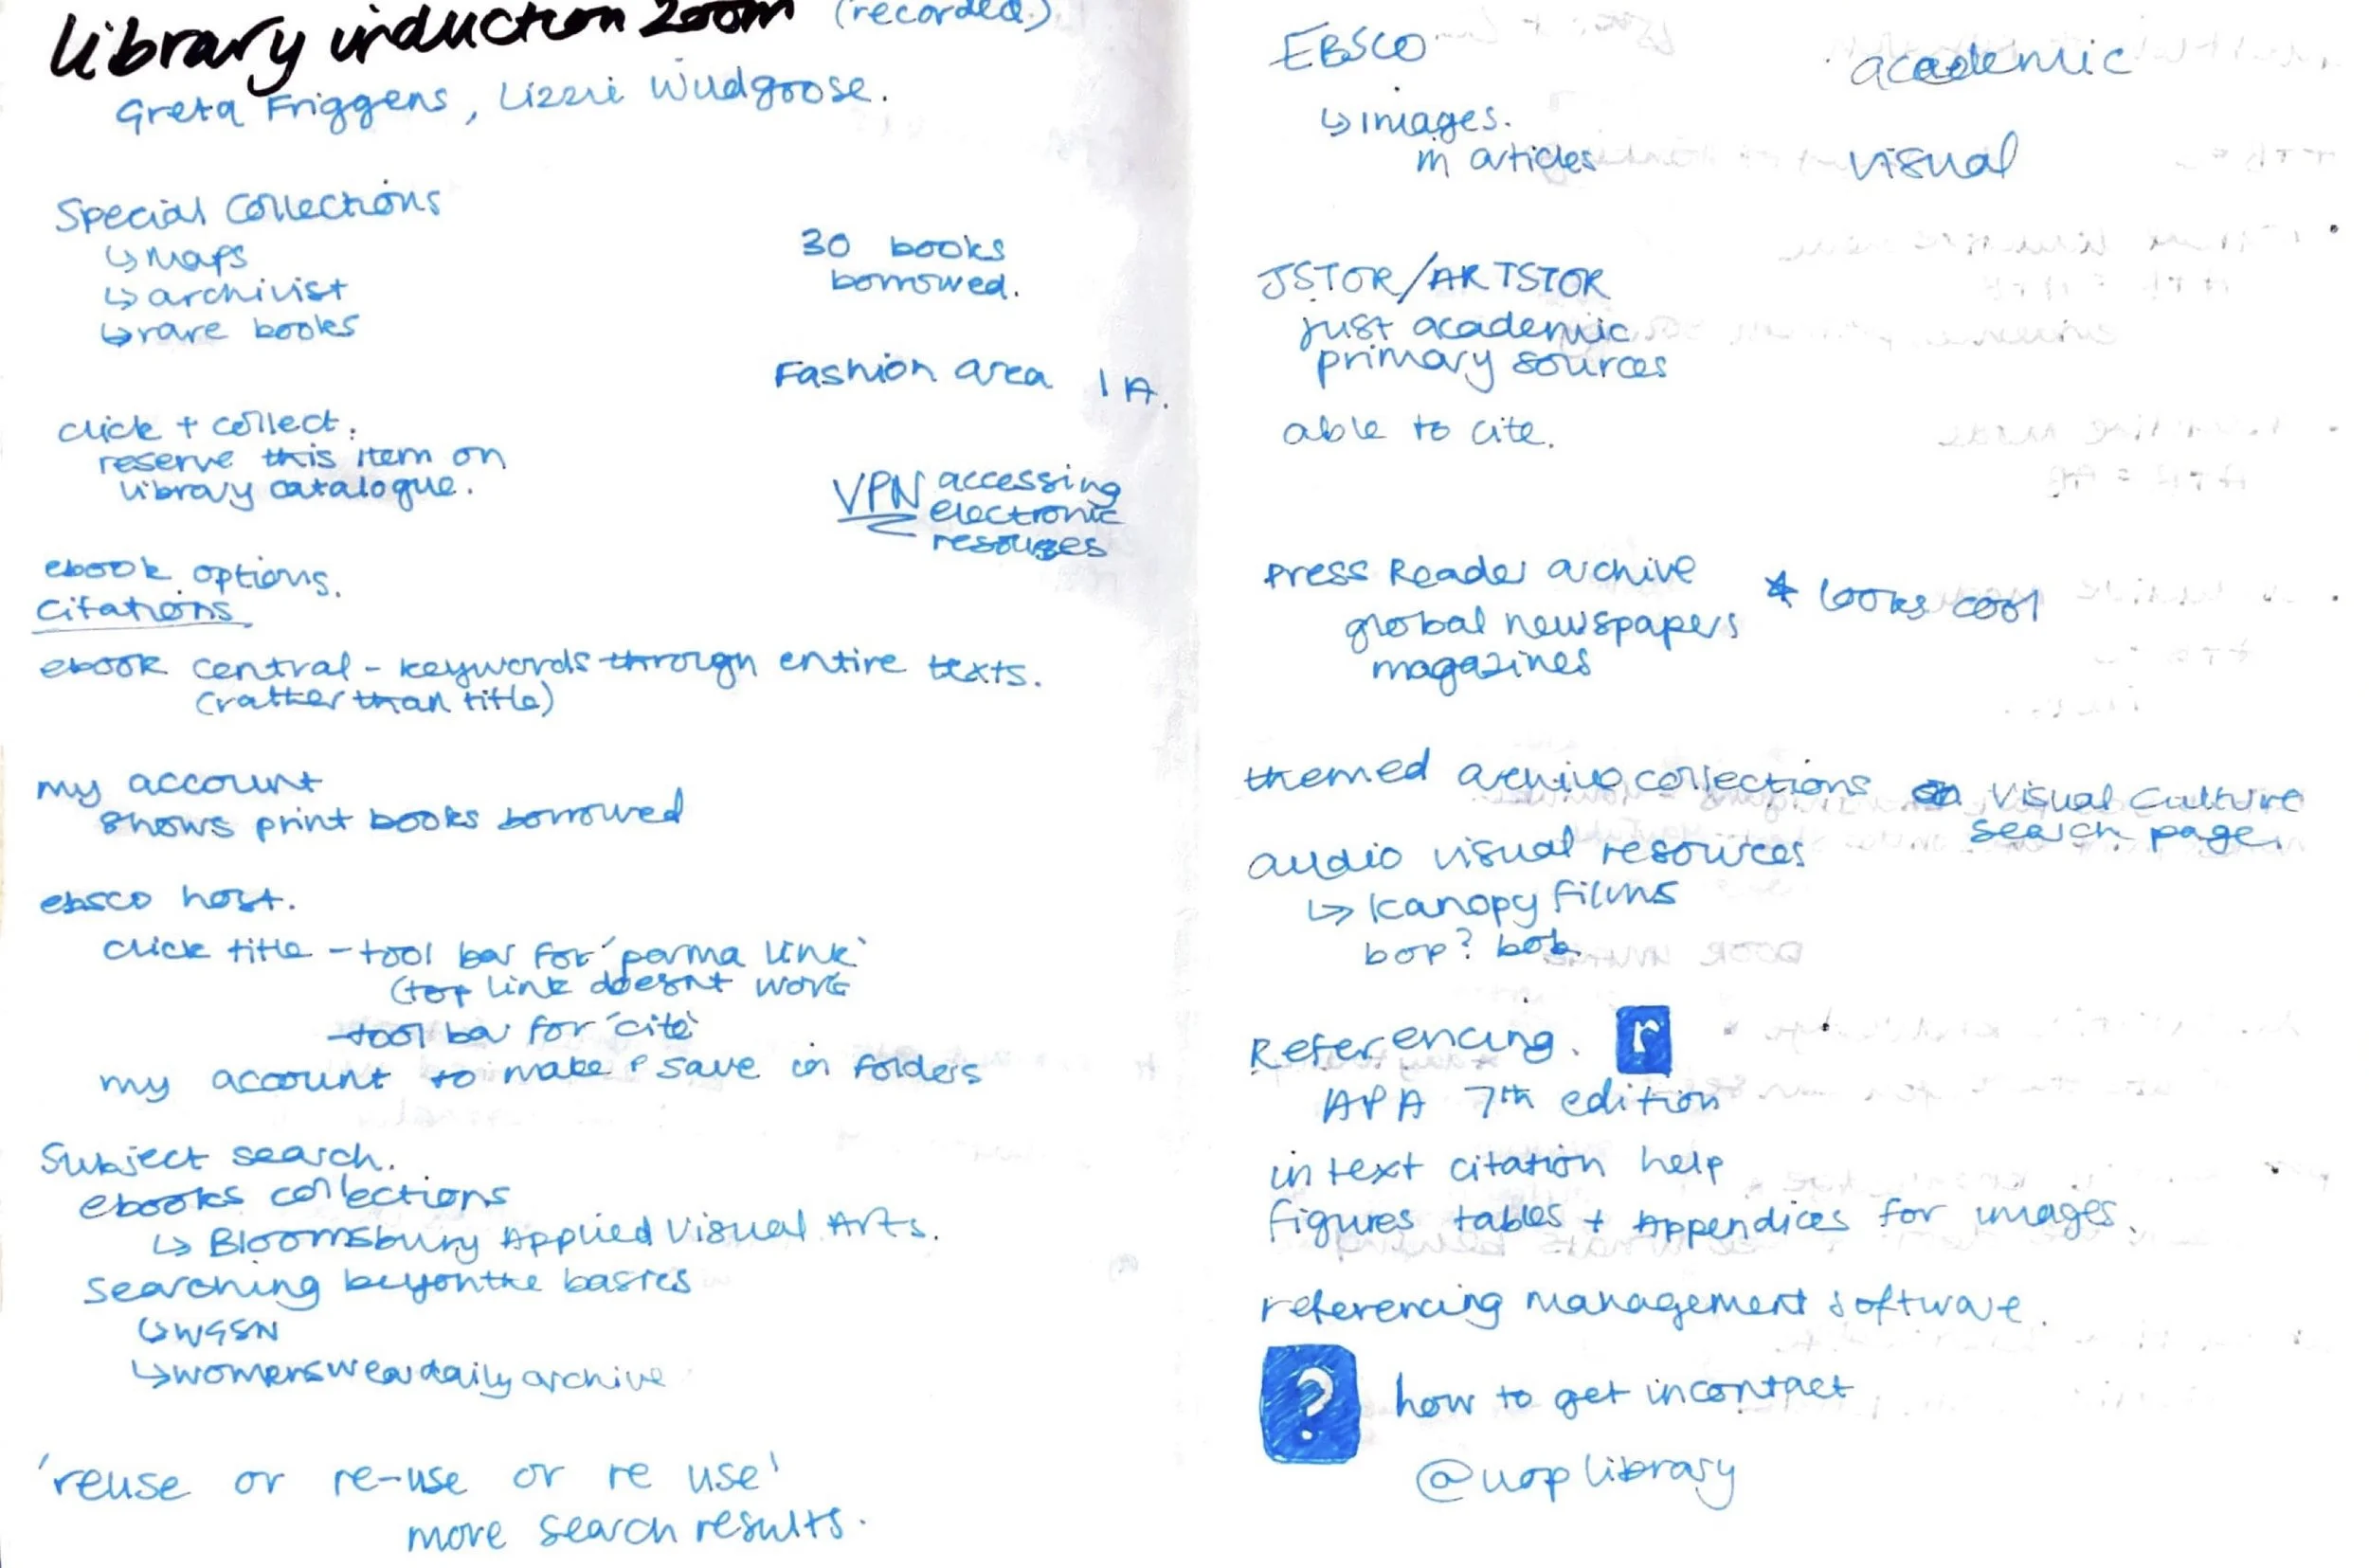 library induction zoom (recorded.)
Greta Friggens, Lizzie Wudgoose.
Special Collections
↳ Maps
↳ archivist
↳ rare books
30 books
borrowed.
Fashion area 1A.
click + collect.
reserve this item on
library catalogue.
VPN accessing
electronic
resources
ebook options.
Citations
ebook central - keywords through entire texts.
(ratther than title)
my account
shows print books borrowed
ebsco host.
click title - tool bar for 'perma link'
(top link doesnt work
- tool bar for 'cite'
my account to make & save in folders
Subject search.
ebooks collections
↳ Bloomsbury Applied Visual Arts.
Searching beyonthe basics
↳ WGSN
↳ womenswear daily archive
'reuse or re-use or re use'
more search results.
EBSCO academic
↳ images.
in articles visual
JSTOR/ARTSTOR
just academic
primary sources
able to cite.
Press Reader archive * looks cool
global newspapers
magazines
themed archive collections on Visual Culture
search page.
audio visual resources
↳ Kanopy films
bop? bob
Referencing. r
APA 7th edition
in text citation help
figures tables + Appendices for images.
referencing management software.
? how to get incontact
@uoplibrary